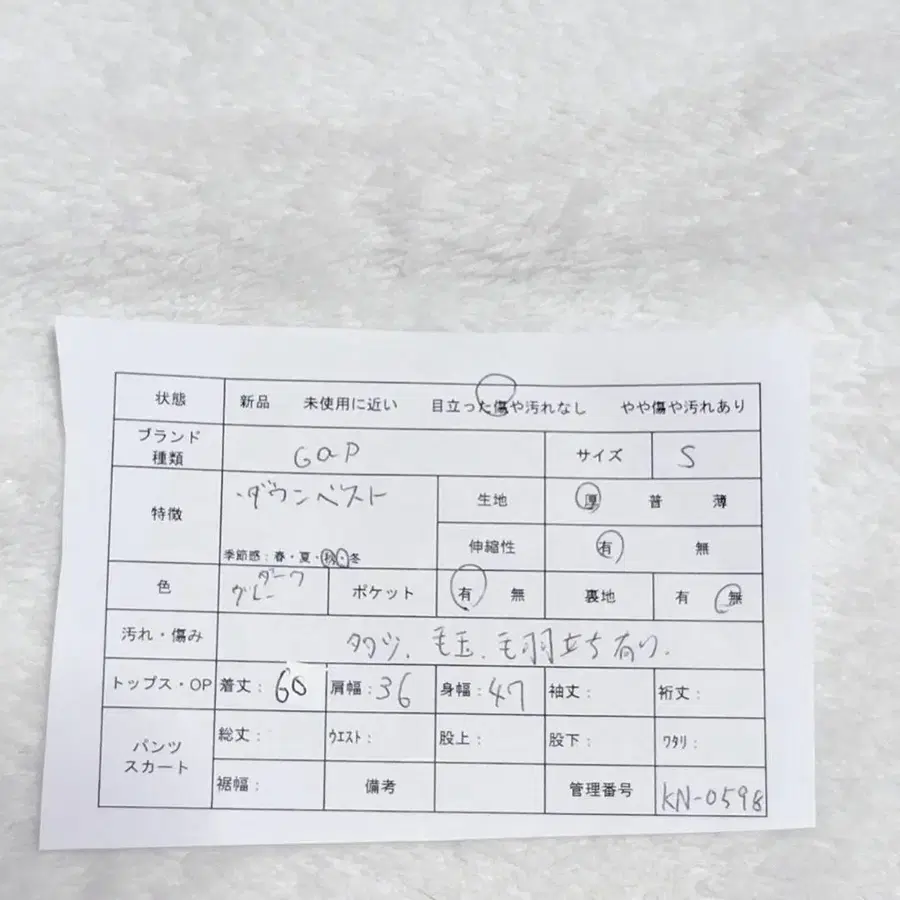 状態 新品 未使用に近い 目立った傷や汚れなし やや傷や汚れあり
ブランド
種類 GaP サイズ S
特徴 ・ダウンベスト 生地 厚 普 薄
季節感:春・夏・秋・冬 伸縮性 有 無
色 ダーク
グレー ポケット 有 無 裏地 有 無
汚れ・傷み 毛玉、毛羽立ち有り.
トップス・OP 着丈: 60 肩幅: 36 身幅: 47 袖丈: 裄丈:
パンツ
スカート 総丈: ウエスト: 股上: 股下: ワタリ:
裾幅: 備考 管理番号 KN-0598